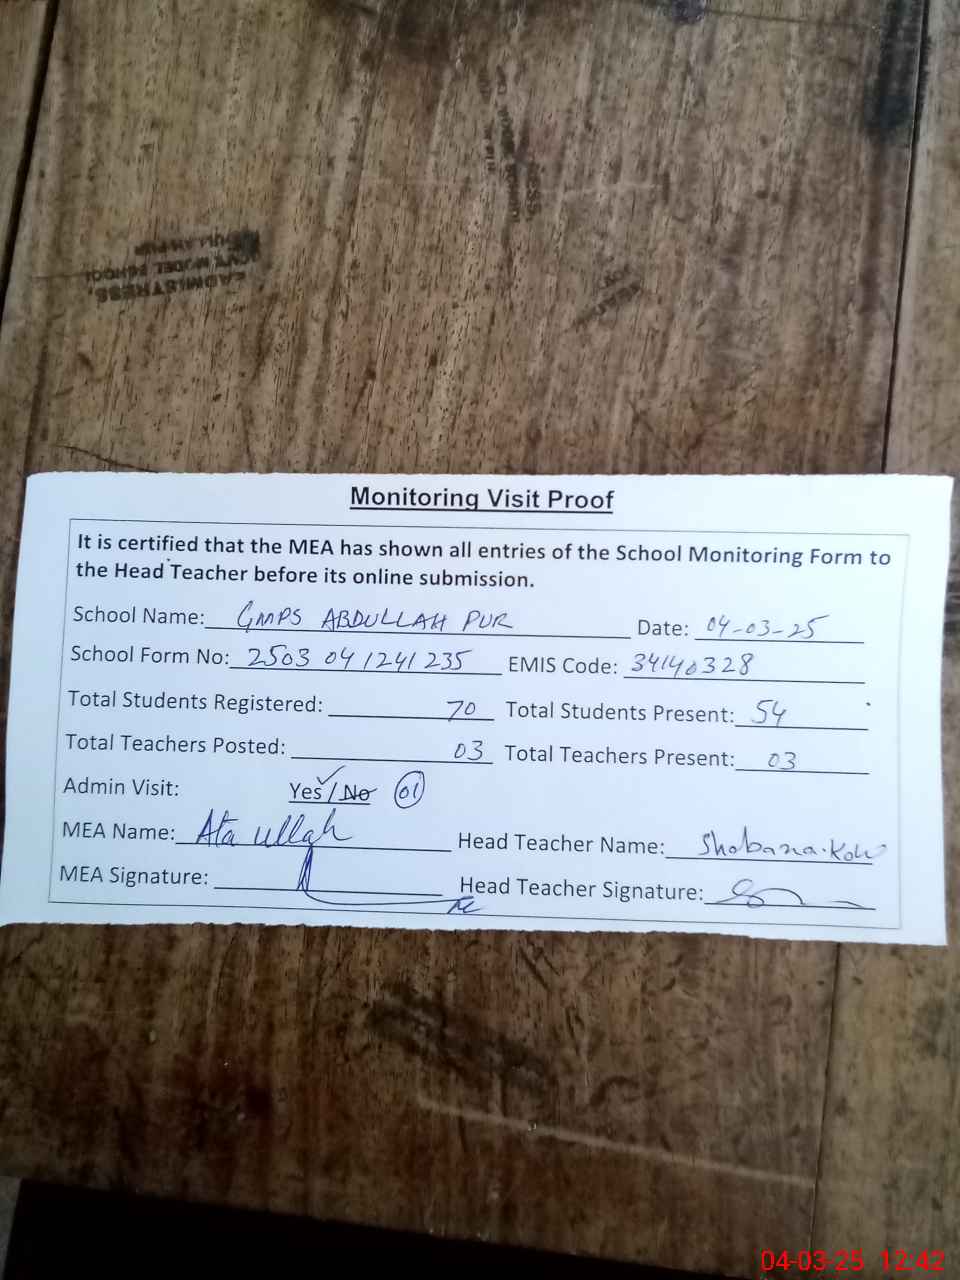 HEADMISTRESS
GOVT. MODEL SCHOOL
ABDULLAH PUR
Monitoring Visit Proof
It is certified that the MEA has shown all entries of the School Monitoring Form to
the Head Teacher before its online submission.
School Name: GMPS ABDULLAH PUR Date: 04-03-25
School Form No: 2503 04 1241 235 EMIS Code: 34140328
Total Students Registered: 70 Total Students Present: 54
Total Teachers Posted: 03 Total Teachers Present: 03
Admin Visit: Yes / No 01
MEA Name: Ata ullah Head Teacher Name: Shabana
MEA Signature: Head Teacher Signature:
04-03-25 12:42